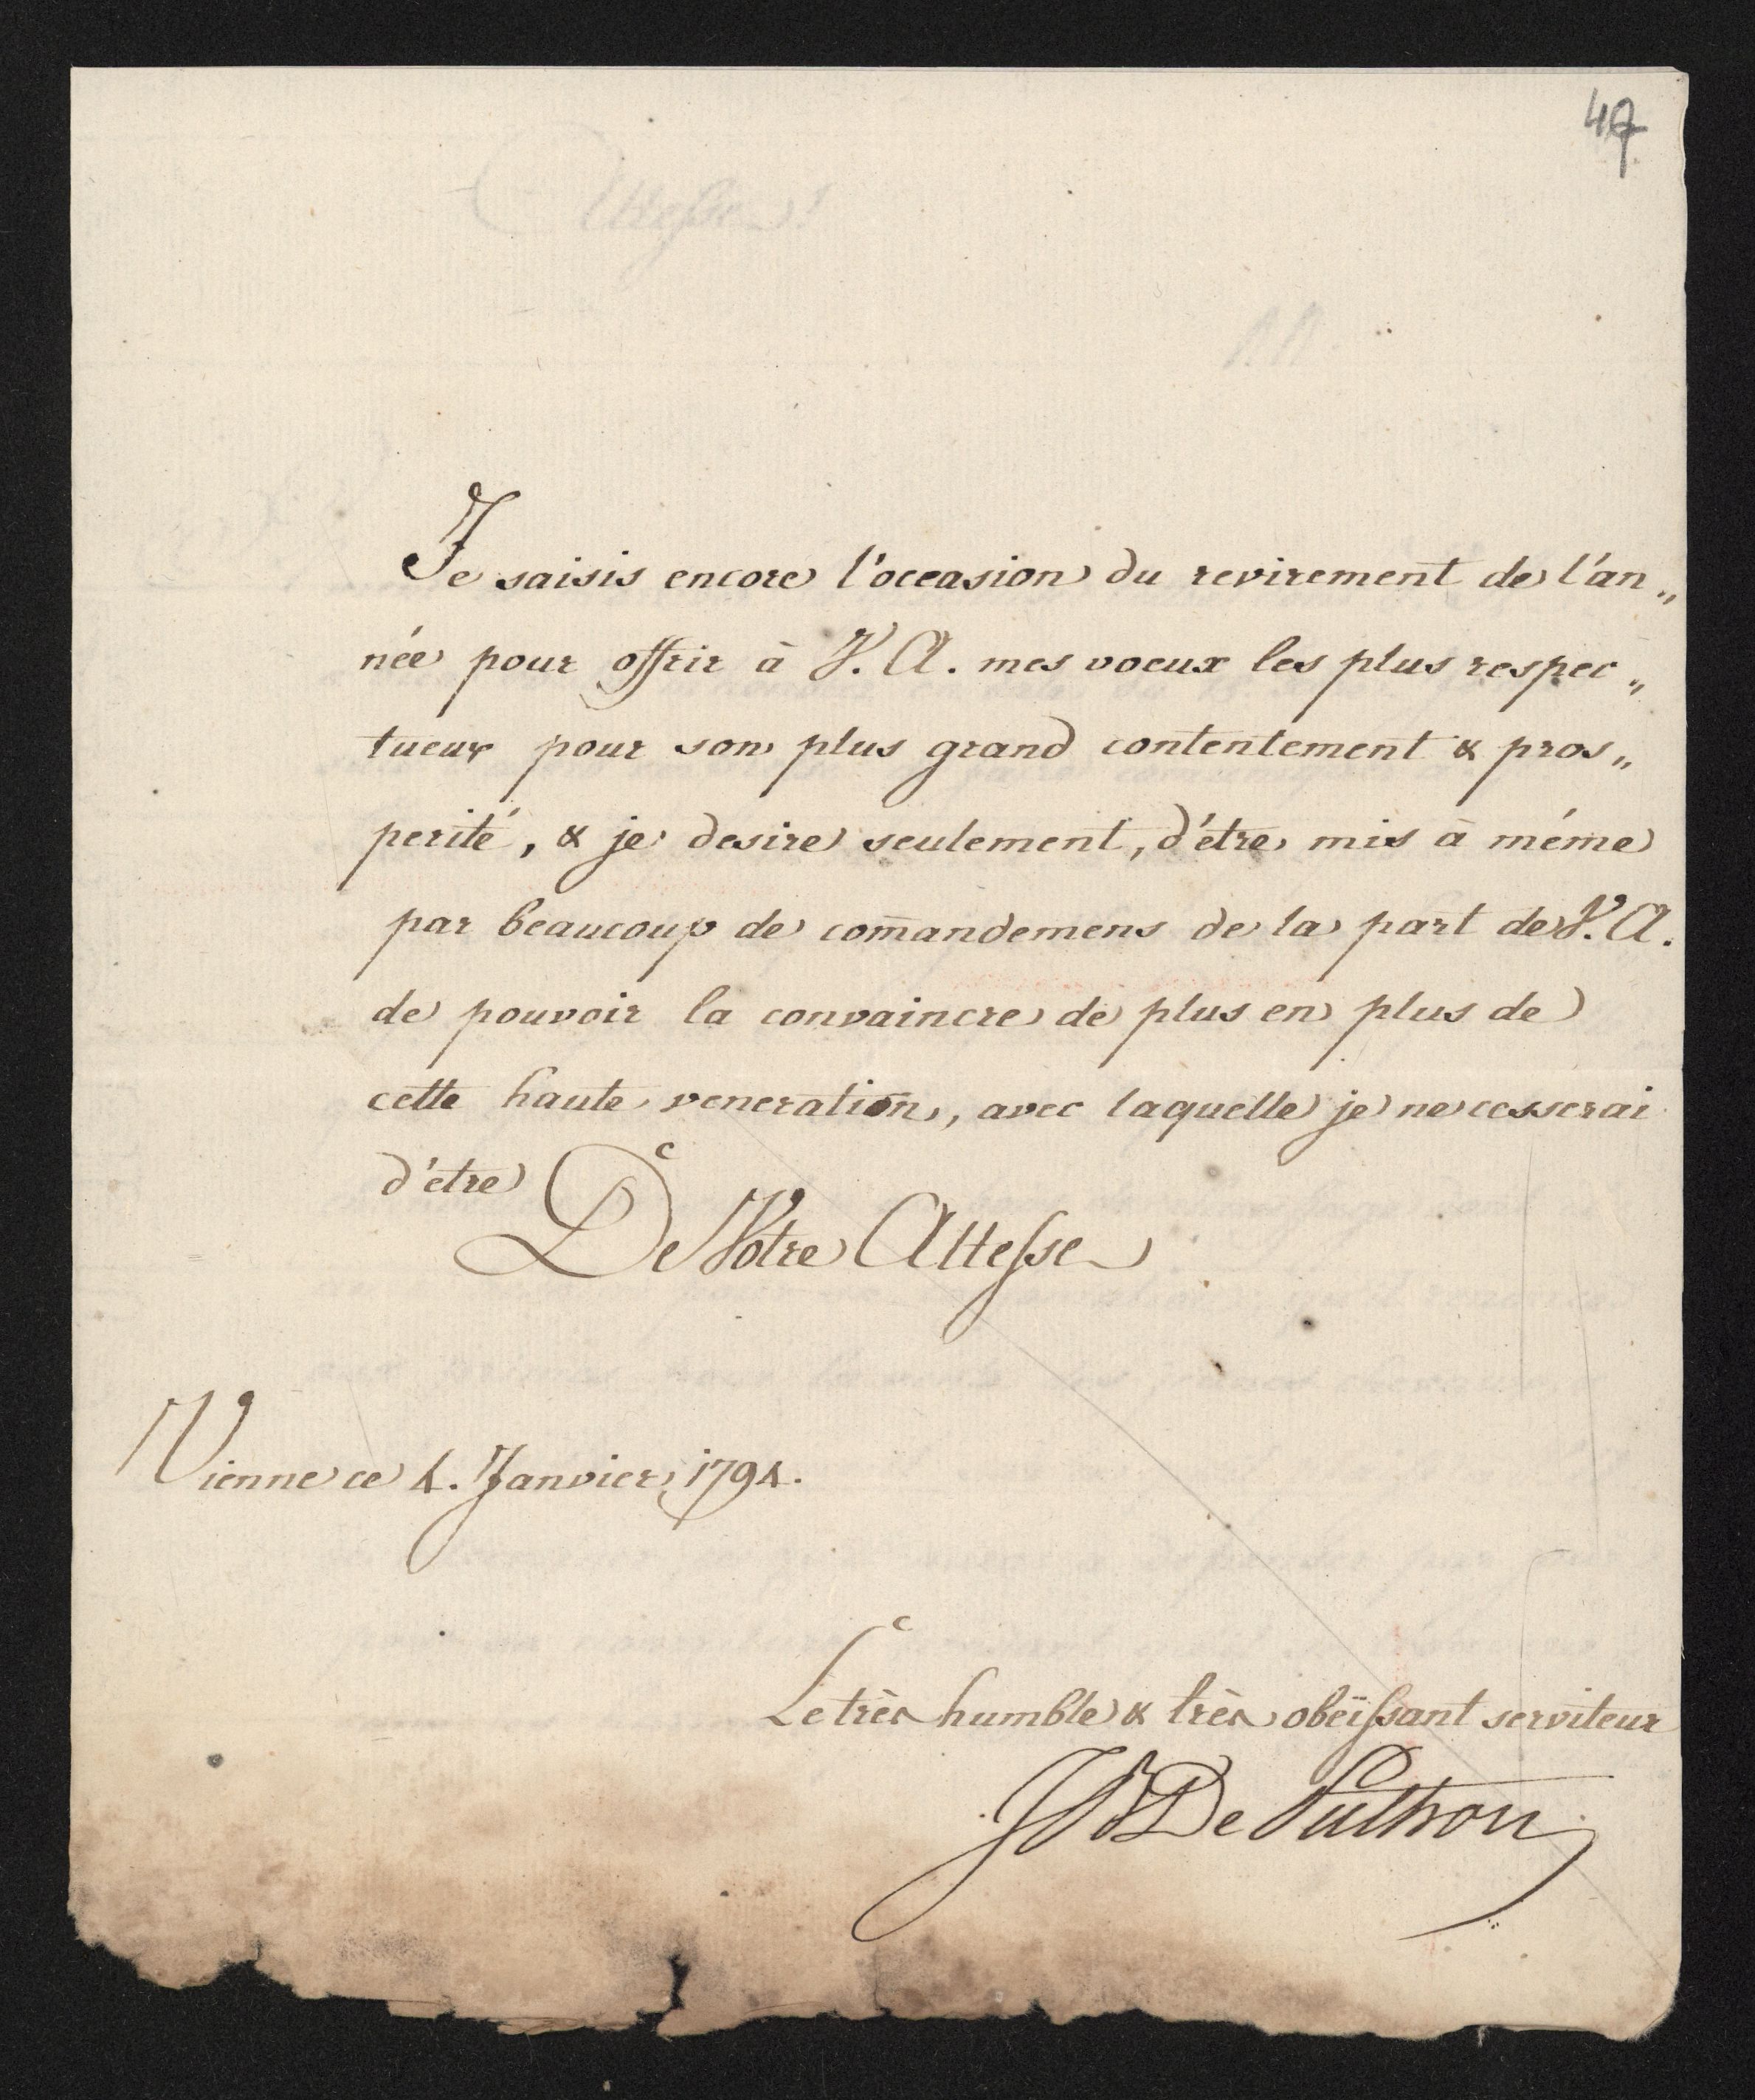 47
Je saisis encore l'occasion du revirement de l'an„
née pour offrir à V. A. mes voeux les plus respec„
tueux pour son plus grand contentement & pros„
perité, & je desire seulement, d'étre mis à méme
par beaucoup de com̄andemens de la part de V. A.
de pouvoir la convaincre de plus en plus de
cette haute veneration, avec laquelle je ne cesserai
d'étre
De Votre Altesse
Vienne ce 4. Janvier 1794.
Le très humble & très obëissant serviteur
De Puthon